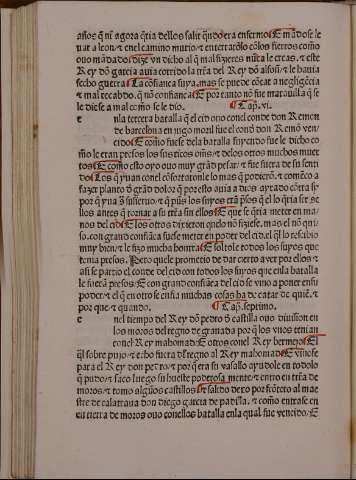 años q̃ nĩ agora q̃ria dellos salir quãdo era enfermo E mãdo se le
uar a leon ⁊ en el camino murio ⁊ enterrarõlo cõ los fierros como
ouo mãdado dize vn dicho al q̃ mal fizieres nũca le creas. ⁊ este
Rey dõ garcia auia corrido la trãa del Rey dõ alfonso ⁊ le hauia
fecho guerra La cõfiança suya. mas se puede cõtar a negligẽcia
⁊ mal recabdo. q̃ nõ confiança E por tanto nõ fue marauilla q̃ se
le diese a mal como se le dio. Cap. vi.
e nla tercera batalla q̃ el cid ouo con el conde don Remon
de barcelona en vngo moril fue el cond don Remõ ven
cido E como fuese dela batalla fuyendo fue le dicho co
mo le eran presos los sus ricos oms ⁊ delos otros muchos muer
tos E como esto oyo ouo muy grãd pesar ⁊ fue fuera de su senti
do Los q̃ yuan con el cõfortarõle lo mas q̃ podierõ. ⁊ comẽco a
fazer planto õ grãd dolor q̃ por esto auia a dios ayrado cõtra sy
por q̃ yua õ sufierto ⁊ q̃ pus los suyos erã psos q̃ el lo q̃ria ser
llos antes q̃ tornar a su trãa sin ellos E que se q̃ria meter en ma
nos del cid E los otros dixieron q̃ lo nõ fiziese. mas el nõ qui
so. con grand confiãça se fuese meter en poder del cid. q̃l lo rescibio
muy bien ⁊ le fizo mucha honrra E soltole todos los suyos que
tenia presos. Pero que le prometio de dar cierto aver por ellos ⁊
asi se partio el conde del cid con todos los suyos que en la batalla
le fuerã presos E con grand confiãça del cid se vino a poner en su
poder ⁊ el q̃ en otro se enfia muchas cosas ha de catar de quiẽ. ⁊
por que ⁊ quando. Cap. septimo.
e nel tiempo del Rey dõ pedro õ castilla ouo diuision en
los moros del regno de granada por q̃ los vnos tenian
con el Rey mahomad E otros con el Rey bermejo El
q̃l sobre pujo ⁊ echo fuera dl regno al Rey mahomad E vinose
para el Rey don pedro ⁊ por q̃ era su vasallo ayudole en todo lo
q̃ pudo ⁊ saco luego su hueste poderosa mente ⁊ entro en trãa de
moros ⁊ tomo algũos castillos E salido dexo por frõtero al mae
stre de calatraua don diego garcia de padilla. ⁊ como entrase en
en tierra de moros ouo con ellos batalla en la qual fue vencido. E